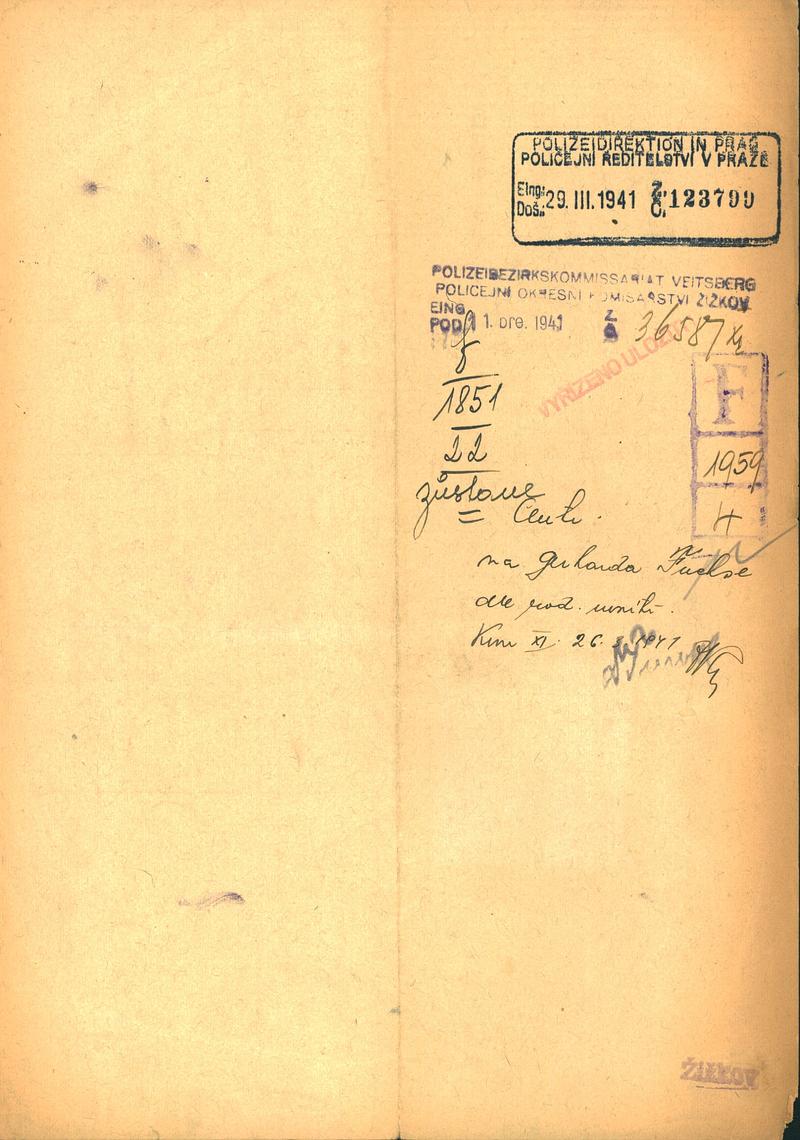 POLIZEIDIREKTION IN PRAG
POLICEJNÍ ŘEDITELSTVÍ V PRAZE
Eing.: Doš.: 29. III. 1941 Z. Č. 123799
POLIZEIBEZIRKSKOMMISSARIAT VEITSBERG
POLICEJNÍ OKRESNÍ KOMISAŘSTVÍ ŽIŽKOV
EING.
POD. 1. 1941 Z Č 36587
VYŘÍZENO ULOŽ
F
1851
22
1959
4
zůstane
na Fuchse
dle rod.
XI. 26. 1941
ŽIŽKOV